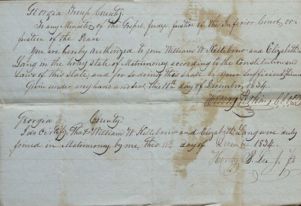 Georgia Troup County.
To any Minister of the Gospel, Judge Justice of the Inferior Court, or
Justice of the Peace
You are hereby Authorized to join William W. and Elizabeth
Lang in the Holy state of Matrimony according to the Constitution and
Laws of this state, and for so doing this shall be your sufficient
Given under my hand and seal this 11th day of December 1834.
Georgia County.
I do Certify that William W. and Elizabeth Lang were duly
joined in Matrimony by me this 11th day of December 1834.